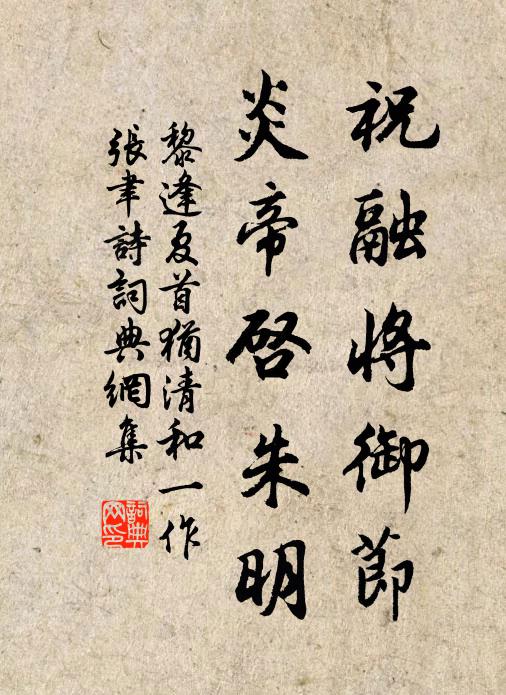 祝融將御節
炎帝啓朱明
黎逢夏首猶清和一作
張聿詩詞典網集
詞典網印